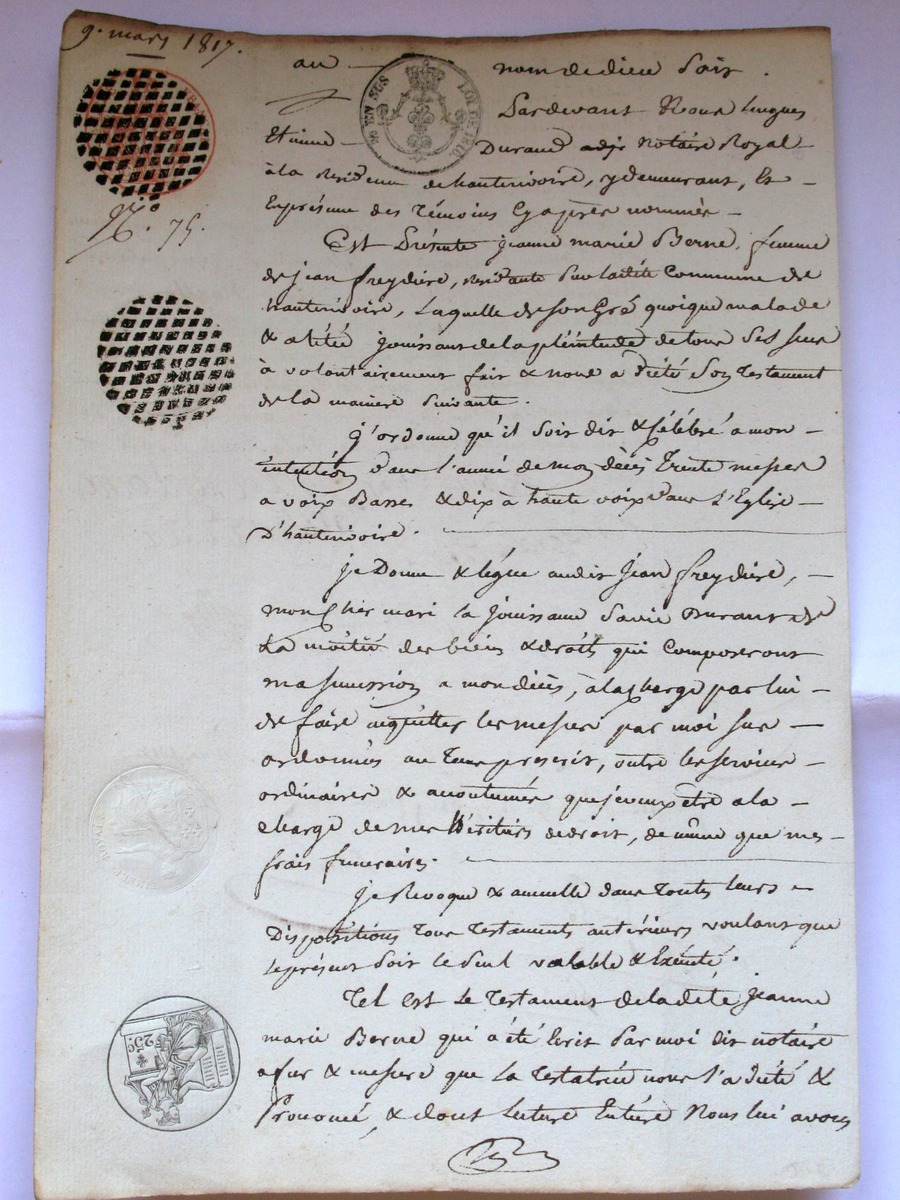 9. mars 1817.
au nom de dieu soit.
Pardevant Nous hugues
Etienne Durand adj notaire Royal
à la Residence de hauterivoire, y demeurant, Et
En présence des Témoins Cy après nommés
N.° 75.
Est Présente jeanne marie Berne, femme
de jean freydière, residante sur la dite Commune de
hauterivoire, Laquelle de son Gré quoique malade
& alitée jouissant de la pleintude de tous Ses sens
à volontairement fait & nous à dicté Son Testament
de la maniere suivante.
j'ordonne qu'il soit dit & célébré a mon
intention dans l'année de mon décès Trente messes
a voix Basses & dix à haute voix dans L'Eglise
D'hauterivoire.
je Donne & légue audit jean freydière,
mon Cher mari la jouissance Savie Durant de
La moitié des biens & droits qui Composeront
ma succession a mon décès, à la charge par lui
de faire acquitter les messes par moi sus
ordonnées au Tems prescrit, outre les services
ordinaires & acoutumés que je veux être a la
charge de mes héritiers de droit, de même que mes
frais funeraires.
je Revoque & annulle dans Toutes leurs
Dispositions Tous Testaments antérieurs voulant que
le présent soit le seul valable & Exécuté.
Tel est le Testament de la dite jeanne
marie Berne qui a été Ecrit Par moi dit notaire
a fur & mesure que La Testatrice nous l'a dicté &
Prononcé, & dont lecture Entière Nous lui avons
EN SUS
LOI DE 1816
25c
ROYAL